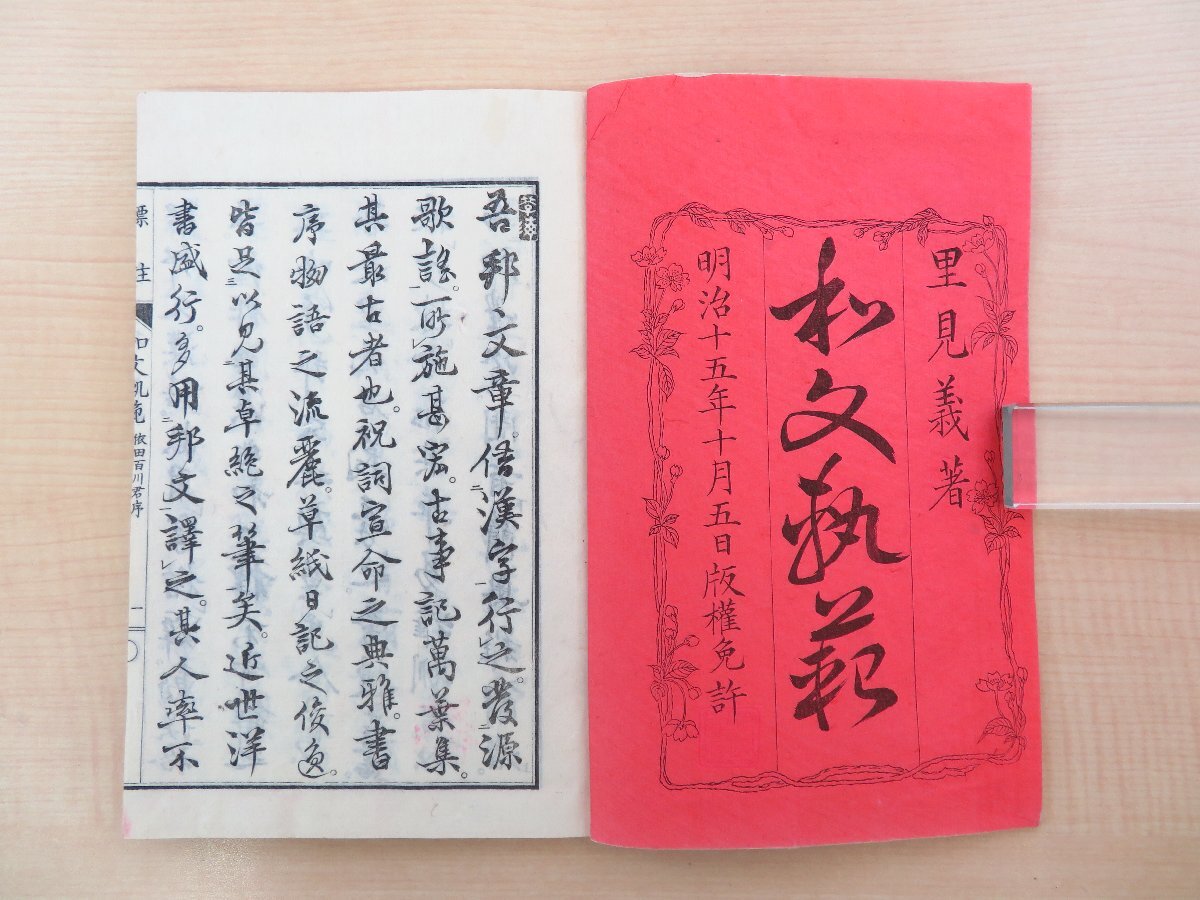 里見義著
和文軌範
明治十五年十月五日版權免許
吾邦文章。借漢字行之。發源
歌謠。所施甚宏。古事記萬葉集。
其最古者也。祝詞宣命之典雅。書
序物語之流麗。草紙日記之俊逸。
皆足以見其卓絶之筆矣。近世洋
書盛行。多用邦文譯之。其人率不
標註
和文軌範 依田百川君序
一